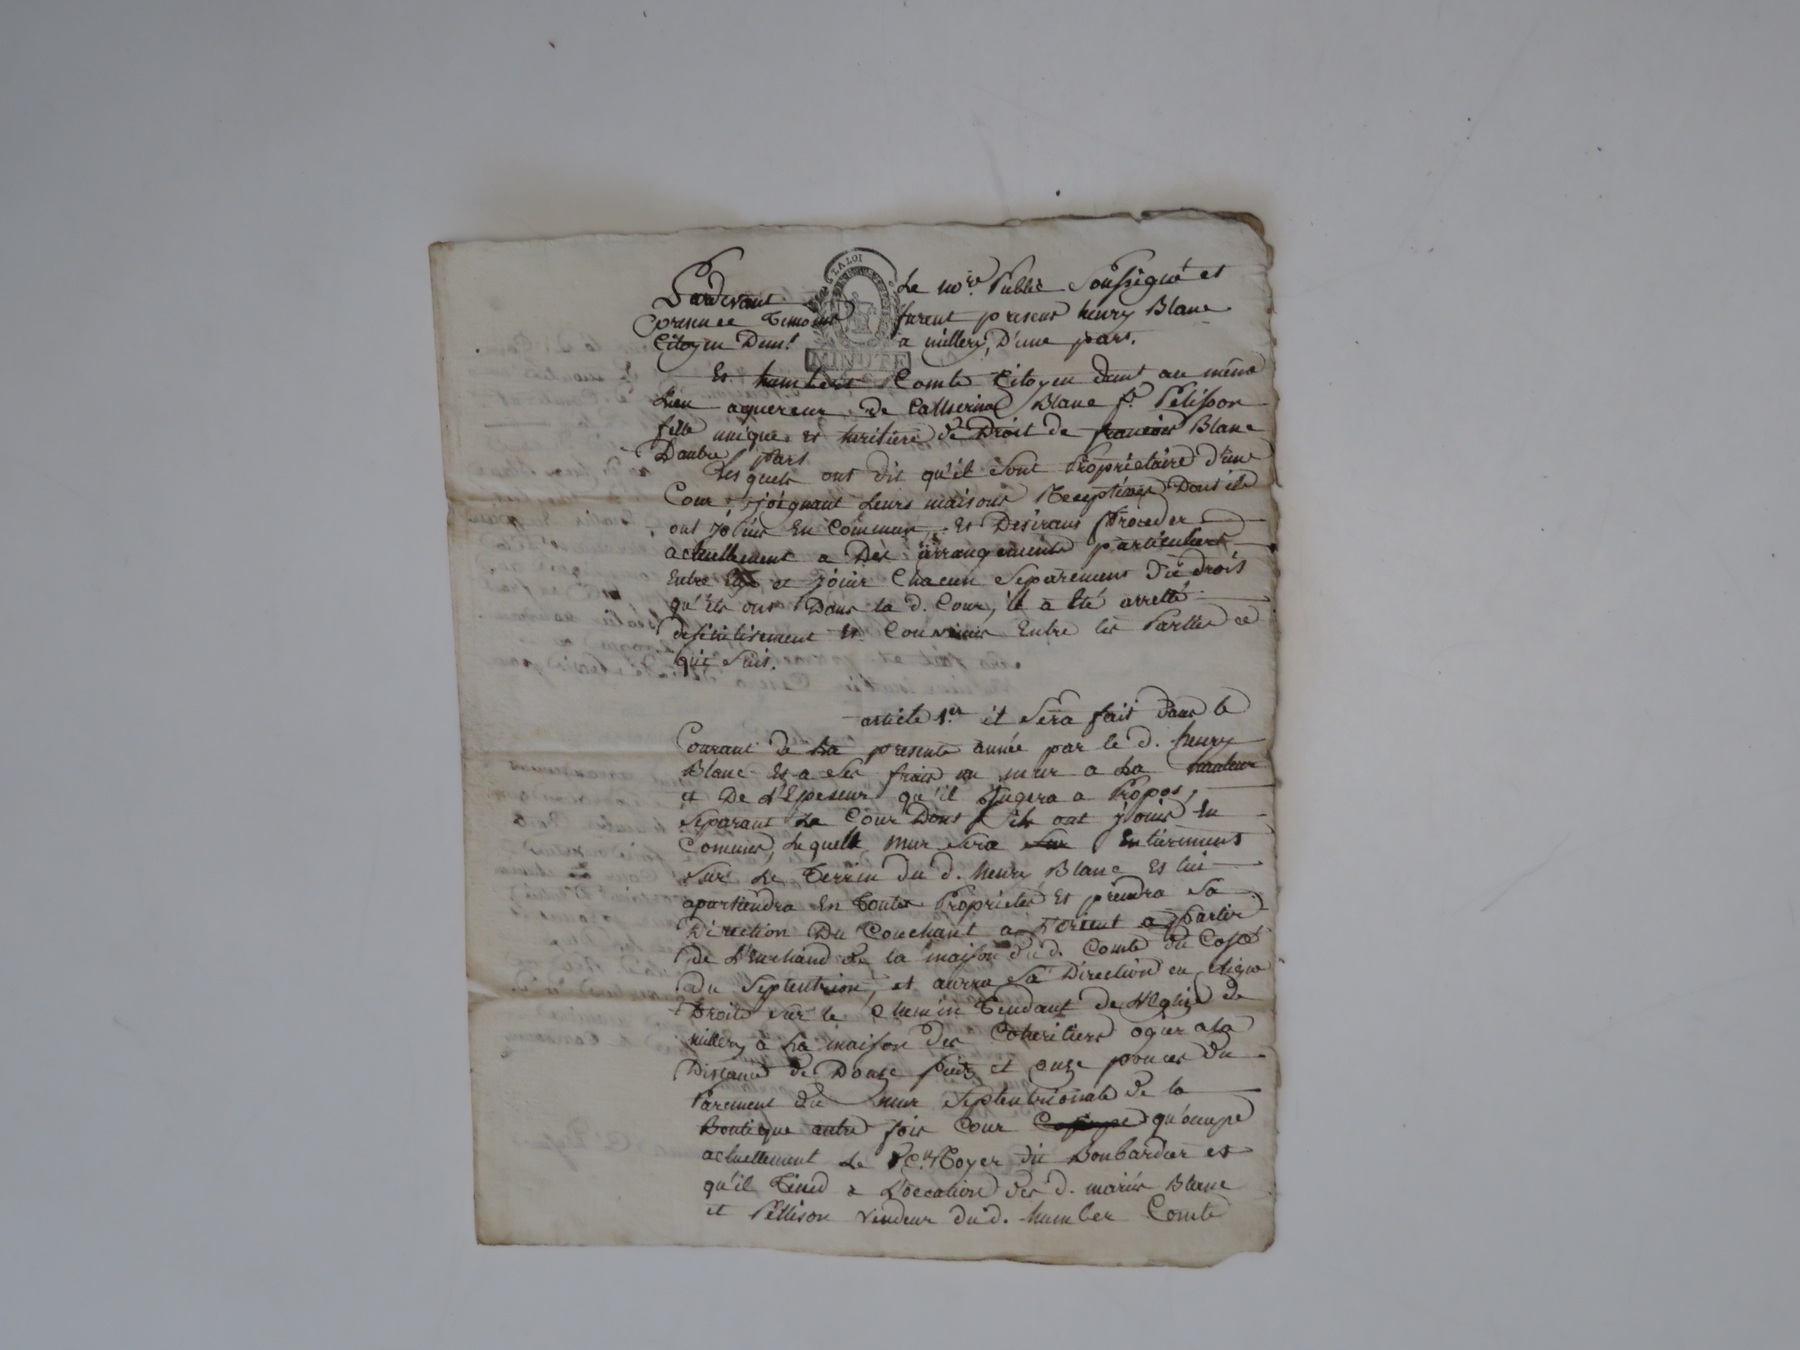 LA LOI
MINUTE
Pardevant Le nore. Public Soussigné et
presence Temoins furent presens henry Blanc
Citoyen Demt. a millery, D'une part.
Et humbert Comte Citoyen demt au même
Lieu aquereur de Catherine Blanc fe. Pelisson
fille unique et heritiere de Droit de francois Blanc
Dautre Part
Les quels ont dit qu'il sont Propriétaire d'une
Cour joignant Leurs maisons Receptives Dont ils
ont joüis En Commun, Et Desirans Proceder
actuellement a Des arrangements particuliers
Entre Eux et joüir Chacun Separement Du droit
qu'ils ont Dans la d. Cour, il a été arretté
definitivement et Convenus Entre les Parties ce
qui suit.
article 1er it Sera fait dans le
Courant de La presente année par le d. henry
Blanc Et a Ses frais un mur a La hauteur
et De L'Epeseur qu'il Jugera a Propos,
Separant La Cour Dont ils ont joüis En
Commun, Lequelle mur Sera Sur Entierement
Sur Le Terrin du d. henry Blanc Et lui
apartiendra En Toutes Proprietés Et prendra Sa
Direction Du Couchant a L'orient a Partir
de L'enchand de la maison du d. Comte du Costé
du Septentrion, et aurra Sa Direction en Ligne
Droite Sur le Chemin Tendant de L'Eglise de
millery à La maison des Coheritiers ogier a La
Distance de Douze pieds et onze pouces du
Parement du mur Septentrionale de la
Boutique autre fois Cour qu'ocupe
actuellement Le Cn. Royer dit Bonbardier et
qu'il Tiend a L'ocation des d. mariés Blanc
et Pellison vendeur du d. humber Comte